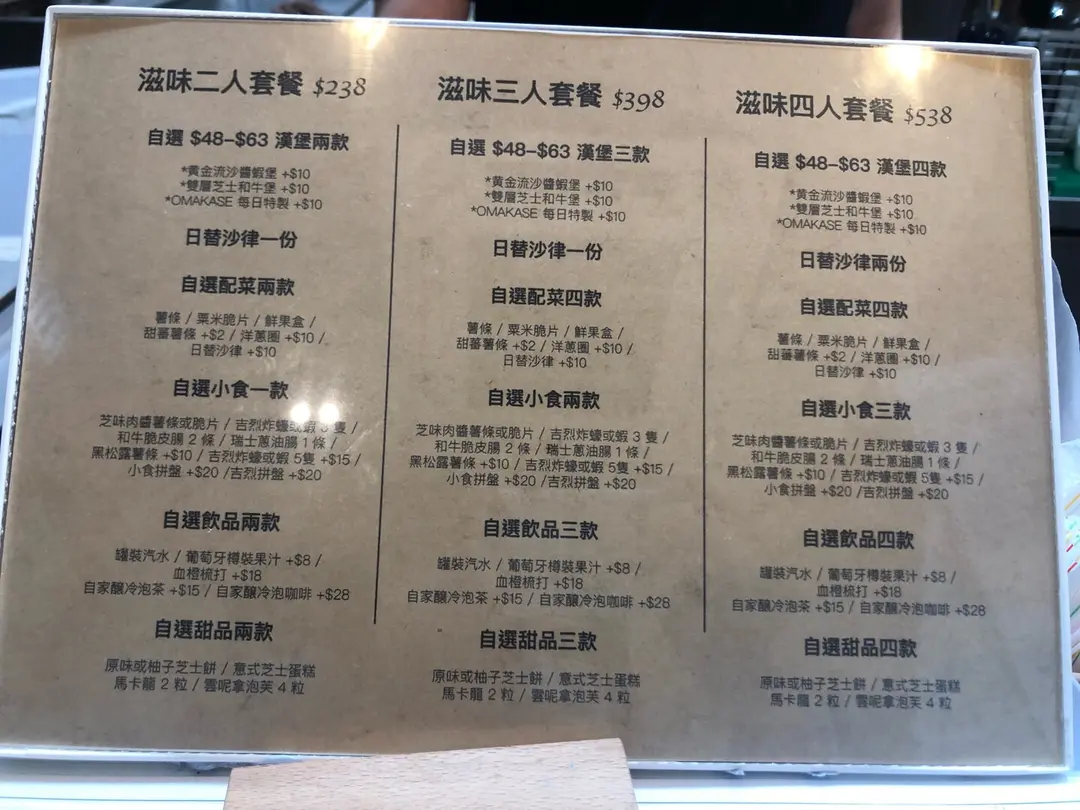 滋味二人套餐 $238
自選 $48–$63 漢堡兩款
*黄金流沙醬蝦堡 +$10
*雙層芝士和牛堡 +$10
*OMAKASE 每日特製 +$10
日替沙律一份
自選配菜兩款
薯條 / 粟米脆片 / 鮮果盒 /
甜蕃薯條 +$2 / 洋蔥圈 +$10 /
日替沙律 +$10
自選小食一款
芝味肉醬薯條或脆片 / 吉烈炸蠔或蝦 3 隻 /
和牛脆皮腸 2 條 / 瑞士蔥油腸 1 條 /
黑松露薯條 +$10 / 吉烈炸蠔或蝦 5隻 +$15 /
小食拼盤 +$20 /吉烈拼盤 +$20
自選飲品兩款
罐裝汽水 / 葡萄牙樽裝果汁 +$8 /
血橙梳打 +$18
自家釀冷泡茶 +$15 / 自家釀冷泡咖啡 +$28
自選甜品兩款
原味或柚子芝士餅 / 意式芝士蛋糕
馬卡龍 2 粒 / 雲呢拿泡芙 4 粒
滋味三人套餐 $398
自選 $48–$63 漢堡三款
*黄金流沙醬蝦堡 +$10
*雙層芝士和牛堡 +$10
*OMAKASE 每日特製 +$10
日替沙律一份
自選配菜四款
薯條 / 粟米脆片 / 鮮果盒 /
甜蕃薯條 +$2 / 洋蔥圈 +$10 /
日替沙律 +$10
自選小食兩款
芝味肉醬薯條或脆片 / 吉烈炸蠔或蝦 3 隻 /
和牛脆皮腸 2 條 / 瑞士蔥油腸 1 條 /
黑松露薯條 +$10 / 吉烈炸蠔或蝦 5隻 +$15 /
小食拼盤 +$20 /吉烈拼盤 +$20
自選飲品三款
罐裝汽水 / 葡萄牙樽裝果汁 +$8 /
血橙梳打 +$18
自家釀冷泡茶 +$15 / 自家釀冷泡咖啡 +$28
自選甜品三款
原味或柚子芝士餅 / 意式芝士蛋糕
馬卡龍 2 粒 / 雲呢拿泡芙 4 粒
滋味四人套餐 $538
自選 $48–$63 漢堡四款
*黄金流沙醬蝦堡 +$10
*雙層芝士和牛堡 +$10
*OMAKASE 每日特製 +$10
日替沙律兩份
自選配菜四款
薯條 / 粟米脆片 / 鮮果盒 /
甜蕃薯條 +$2 / 洋蔥圈 +$10 /
日替沙律 +$10
自選小食三款
芝味肉醬薯條或脆片 / 吉烈炸蠔或蝦 3 隻 /
和牛脆皮腸 2 條 / 瑞士蔥油腸 1 條 /
黑松露薯條 +$10 / 吉烈炸蠔或蝦 5隻 +$15 /
小食拼盤 +$20 /吉烈拼盤 +$20
自選飲品四款
罐裝汽水 / 葡萄牙樽裝果汁 +$8 /
血橙梳打 +$18
自家釀冷泡茶 +$15 / 自家釀冷泡咖啡 +$28
自選甜品四款
原味或柚子芝士餅 / 意式芝士蛋糕
馬卡龍 2 粒 / 雲呢拿泡芙 4 粒